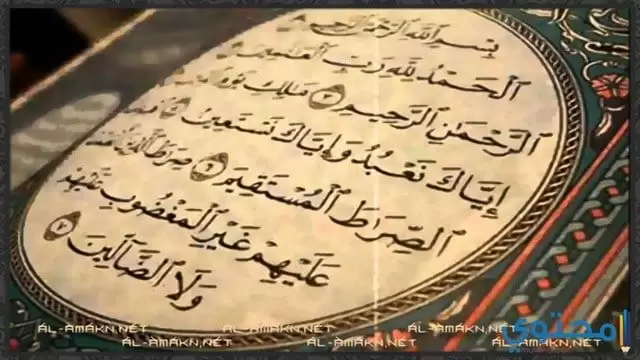 بِسْمِ اللَّهِ الرَّحْمَٰنِ الرَّحِيمِ
الْحَمْدُ لِلَّهِ رَبِّ الْعَالَمِينَ
الرَّحْمَٰنِ الرَّحِيمِ ٣ مَالِكِ يَوْمِ
إِيَّاكَ نَعْبُدُ وَإِيَّاكَ نَسْتَعِينُ ٥
الصِّرَاطَ الْمُسْتَقِيمَ ٦ صِرَاطَ الَّذِينَ
عَلَيْهِمْ غَيْرِ الْمَغْضُوبِ عَلَيْهِمْ
وَلَا الضَّالِّينَ ٧
محتوى
AL-AMAKN.NET AL-AMAKN.NET AL-AMAKN.NET
AL-AMAKN.NET AL-AMAKN.NET AL-AMAKN.NET AL-AMAKN.NET